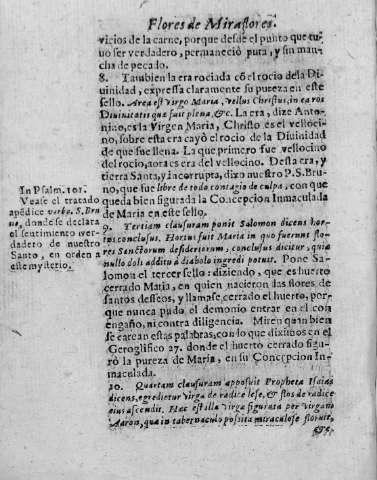 Flores de Miraflores.
vicios de la carne, porque desde el punto que tu-
vo ser verdadero, permaneciò pura, y sin man-
cha de pecado.
8. Tambien la era rociada cõ el rocio de la Di-
uinidad, expressa claramente su pureza en este
sello. Area est virgo Maria, vellus Christus, in ea ros
Diuinitatis quæ fuit plena, &c. La era, dize Anto-
nino, es la Virgen Maria, Christo es el vellocino,
sobre esta era cayò el rocio de la Diuinidad
de que fue llena. La que primero fue vellocino
del rocio, aora es era del vellocino. Desta era, y
tierra Santa, y incorrupta, dixo nuestro P. S. Bru-
no, que fue libre de todo contagio de culpa, con que
queda bien figurada la Concepcion Inmaculada
de Maria en este sello.
9. Tertiam clausuram ponit Salomon dicens hor-
tus conclusus. Hortus fuit Maria in quo fuerunt flo-
res Sanctorum desideriorum; conclusus dicitur, quia
nullo dolo additu à diabolo ingredi potuit. Pone Sa-
lomon el tercer sello: diziendo, que es huerto
cerrado Maria, en quien nacieron las flores de
santos desseos, y llamase, cerrado el huerto, por-
que nunca pudo el demonio entrar en el con
engaño, ni contra diligencia. Miren quan bien
se carean estas palabras, con lo que diximos en el
Geroglifico 27. donde el huerto cerrado figu-
rò la pureza de Maria, en su Concepcion In-
maculada.
10. Quartam clausuram apposuit Propheta Isaias
dicens, egredietur virga de radice Iese, & flos de radice
eius ascendit. Hæc est illa virga figurata per virgam
Aaron, quæ in tabernaculo possita miraculose floruit,
&c.
In Psalm. 101.
Vease el tratado
apẽdice verbo. S. Bru
no, donde se declara
el sentimiento ver-
dadero de nuestro
Santo, en orden a
este mysterio.